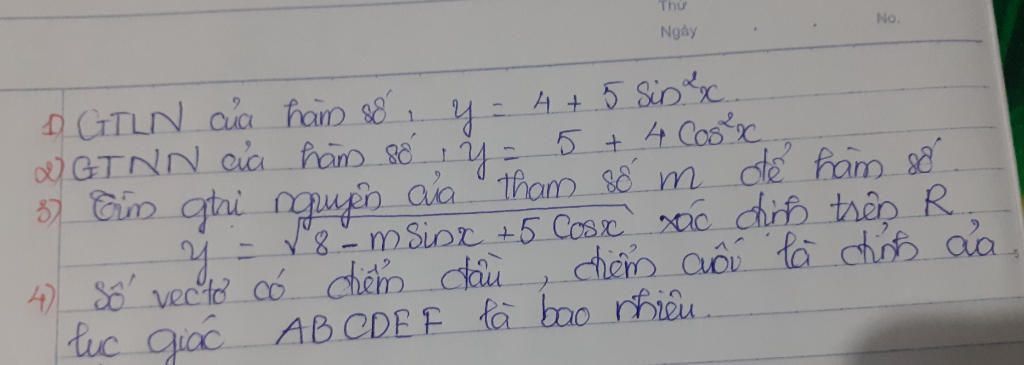 Thứ
Ngày . . No.
1) GTLN của hàm số, y = 4 + 5 Sin²x
2) GTNN của hàm số, y = 5 + 4 Cos²x
3) Tìm gtri nguyên của tham số m để hàm số
y = √8 - m Sinx + 5 Cosx xác định trên R
4) Số vectơ có điểm đầu, điểm cuối là đỉnh của
lục giác ABCDEF là bao nhiêu.